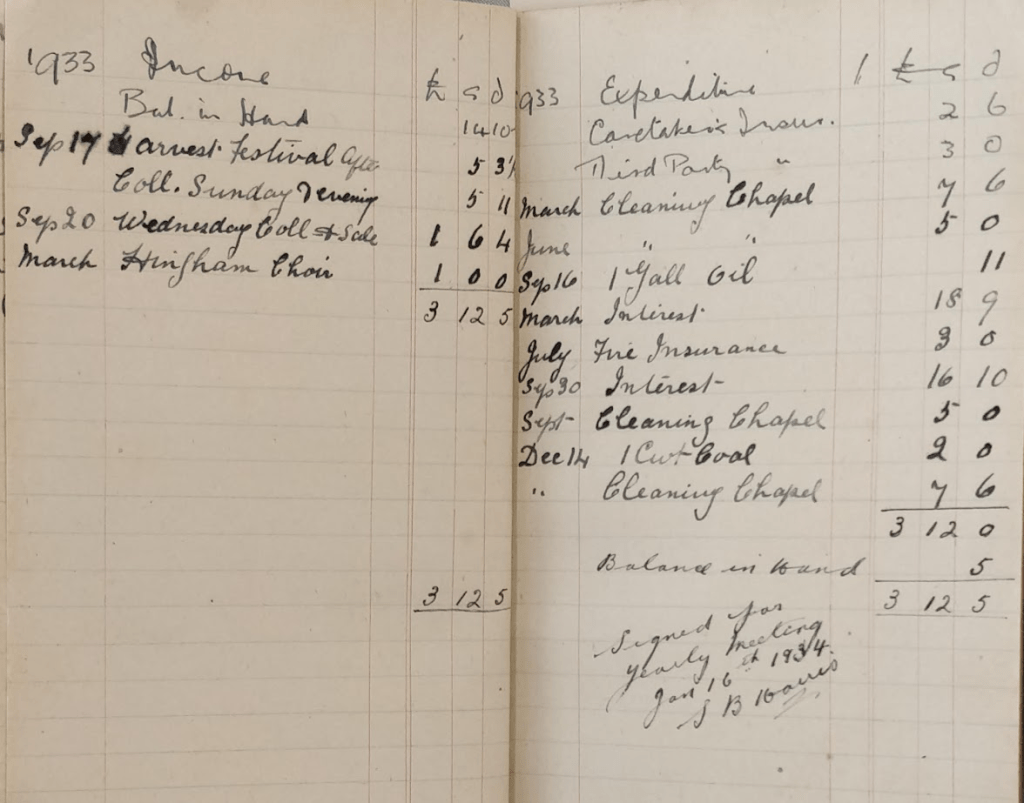 1933 Income £ s d
Bal. in Hand 14 10
Sep 17 Harvest Festival After 5 3½
Coll. Sunday & evening 5 11
Sep 20 Wednesday Coll & Sale 1 6 4
March Hingham Choir 1 0 0
3 12 5
3 12 5
1933 Expenditure £ s d
Caretakers Insur. 2 6
Third Party " 3 0
March Cleaning Chapel 7 6
June " " 5 0
Sep 16 1 Gall Oil 11
March Interest 18 9
July Fire Insurance 3 0
Sep 30 Interest 16 10
Sept Cleaning Chapel 5 0
Dec 14 1 Cwt Coal 2 0
" Cleaning Chapel 7 6
3 12 0
Balance in Hand 5
3 12 5
Signed for
yearly meeting
Jan 16th 1934.
S B Harris